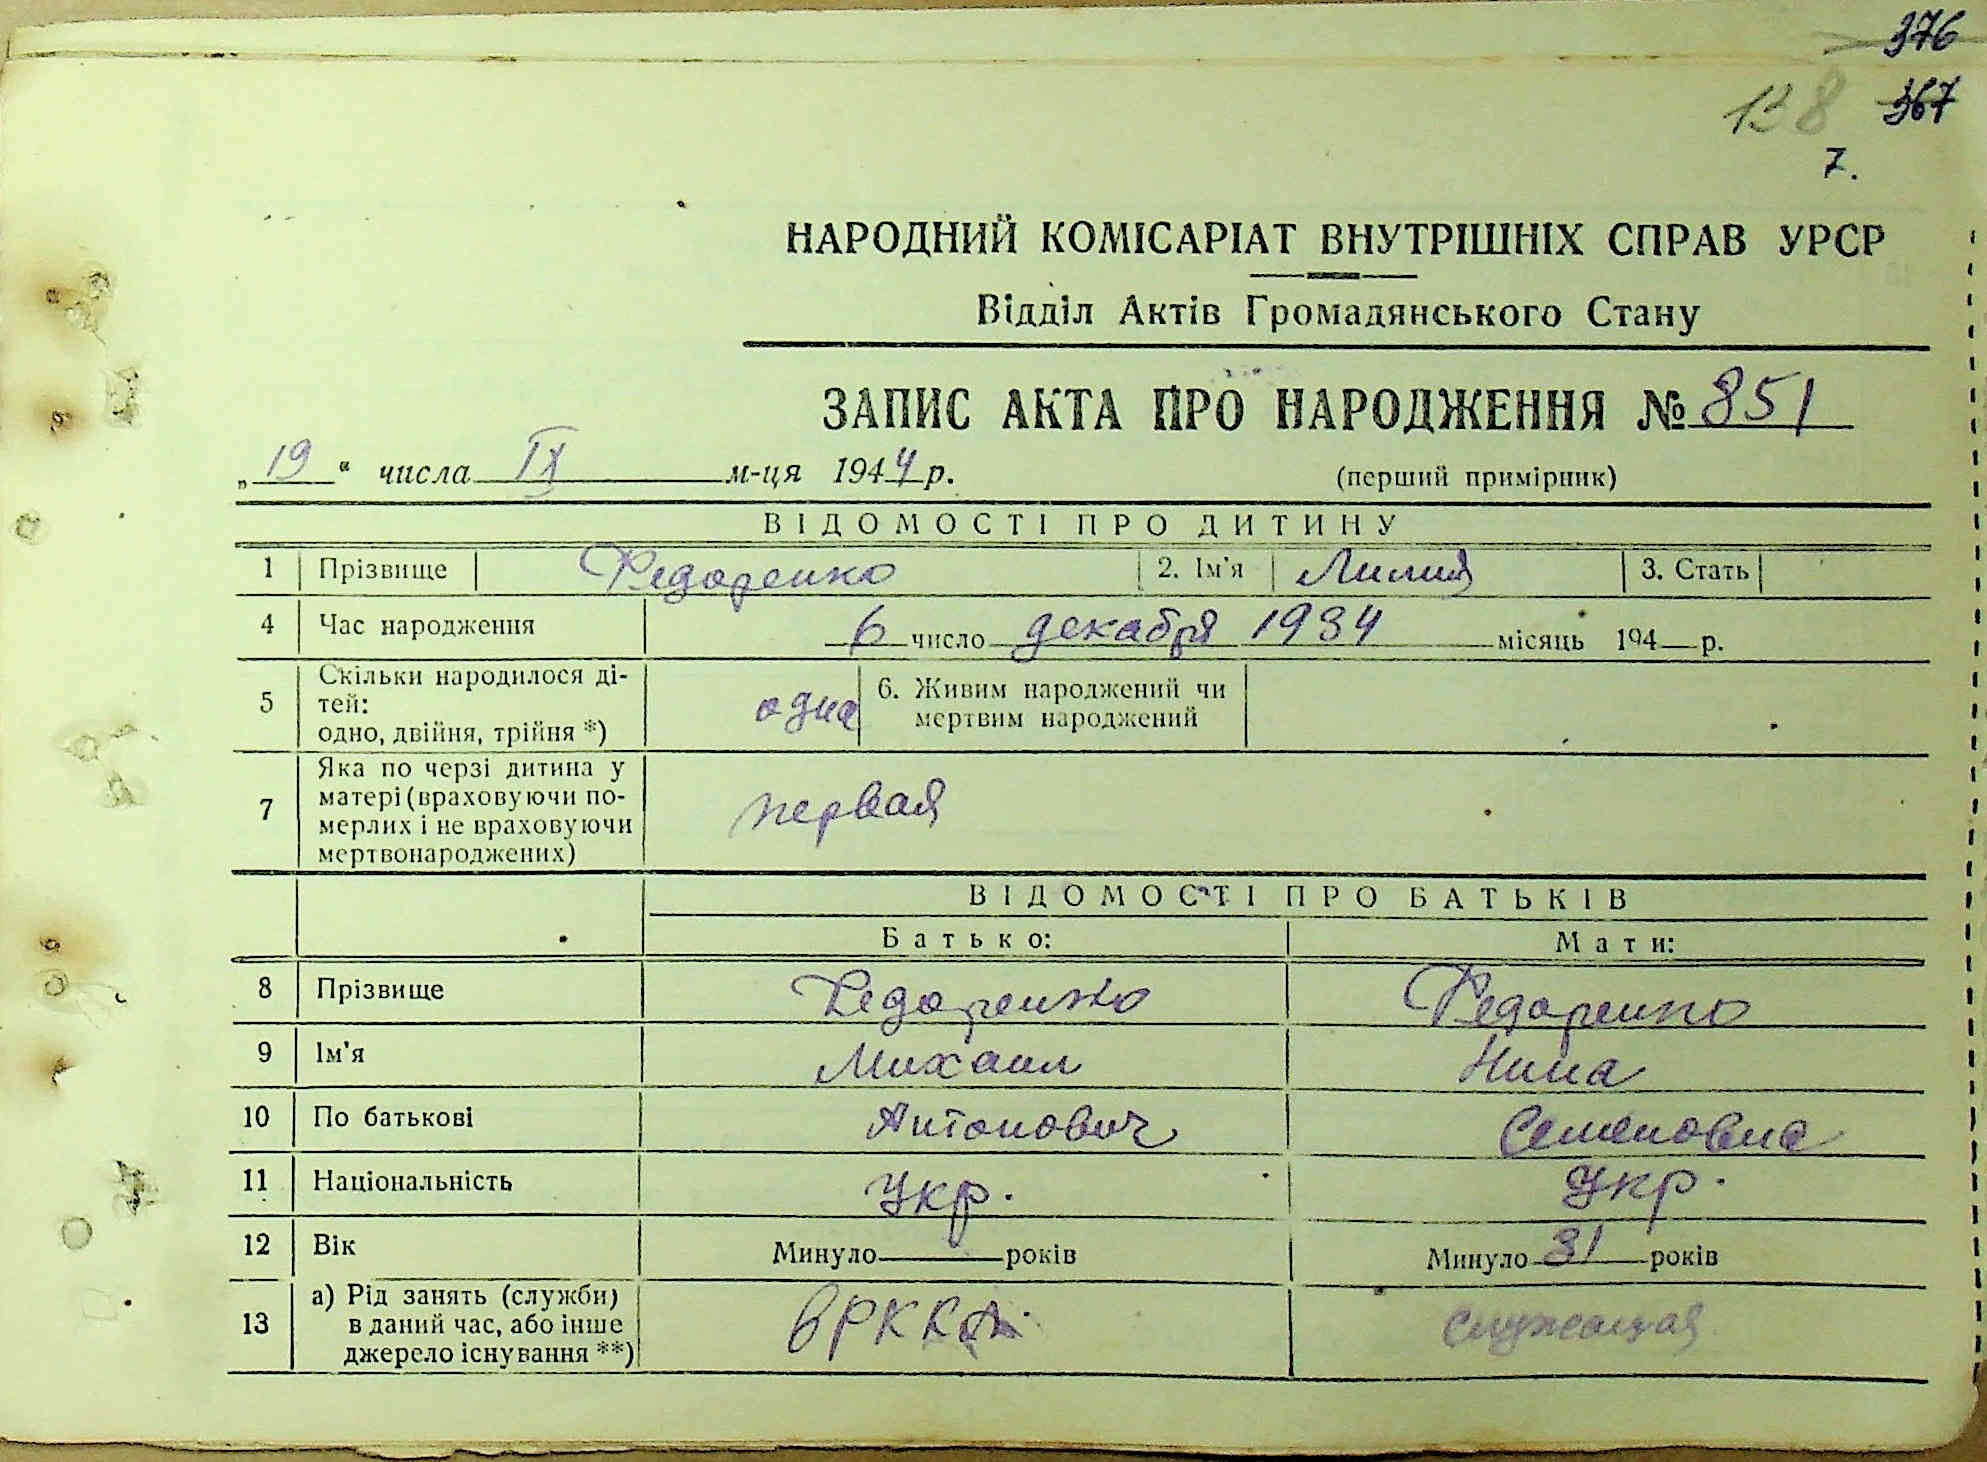 376
138 367
7.
НАРОДНИЙ КОМІСАРІАТ ВНУТРІШНІХ СПРАВ УРСР
Відділ Актів Громадянського Стану
ЗАПИС АКТА ПРО НАРОДЖЕННЯ № 851
„19“ числа IX м-ця 1944 р. (перший примірник)
ВІДОМОСТІ ПРО ДИТИНУ
1 Прізвище Федоренко 2. Ім'я Лилия 3. Стать
4 Час народження 6 число декабря 1934 місяць 194 р.
5 Скільки народилося ді-
тей:
одно, двійня, трійня *) одна 6. Живим народжений чи
мертвим народжений
7 Яка по черзі дитина у
матері (враховуючи по-
мерлих і не враховуючи
мертвонароджених) первая
ВІДОМОСТІ ПРО БАТЬКІВ
Батько: Мати:
8 Прізвище Федоренко Федоренко
9 Ім'я Михаил Нина
10 По батькові Антонович Семеновна
11 Національність Укр. Укр.
12 Вік Минуло років Минуло 31 років
13 а) Рід занять (служби)
в даний час, або інше
джерело існування **) в РККА служащая